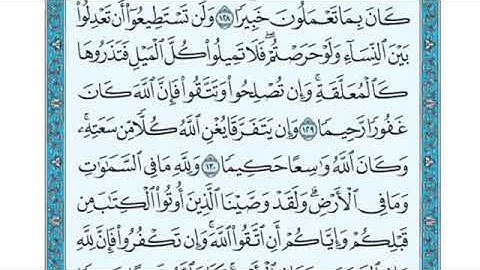 كَانَ بِمَا تَعْمَلُونَ خَبِيرًا ١٢٨ وَلَن تَسْتَطِيعُوٓا۟ أَن تَعْدِلُوا۟
بَيْنَ ٱلنِّسَآءِ وَلَوْ حَرَصْتُمْ ۖ فَلَا تَمِيلُوا۟ كُلَّ ٱلْمَيْلِ فَتَذَرُوهَا
كَٱلْمُعَلَّقَةِ ۚ وَإِن تُصْلِحُوا۟ وَتَتَّقُوا۟ فَإِنَّ ٱللَّهَ كَانَ
غَفُورًا رَّحِيمًا ١٢٩ وَإِن يَتَفَرَّقَا يُغْنِ ٱللَّهُ كُلًّا مِّن سَعَتِهِۦ ۚ
وَكَانَ ٱللَّهُ وَٰسِعًا حَكِيمًا ١٣٠ وَلِلَّهِ مَا فِى ٱلسَّمَٰوَٰتِ
وَمَا فِى ٱلْأَرْضِ ۗ وَلَقَدْ وَصَّيْنَا ٱلَّذِينَ أُوتُوا۟ ٱلْكِتَٰبَ مِن
قَبْلِكُمْ وَإِيَّاكُمْ أَنِ ٱتَّقُوا۟ ٱللَّهَ ۚ وَإِن تَكْفُرُوا۟ فَإِنَّ لِلَّهِ